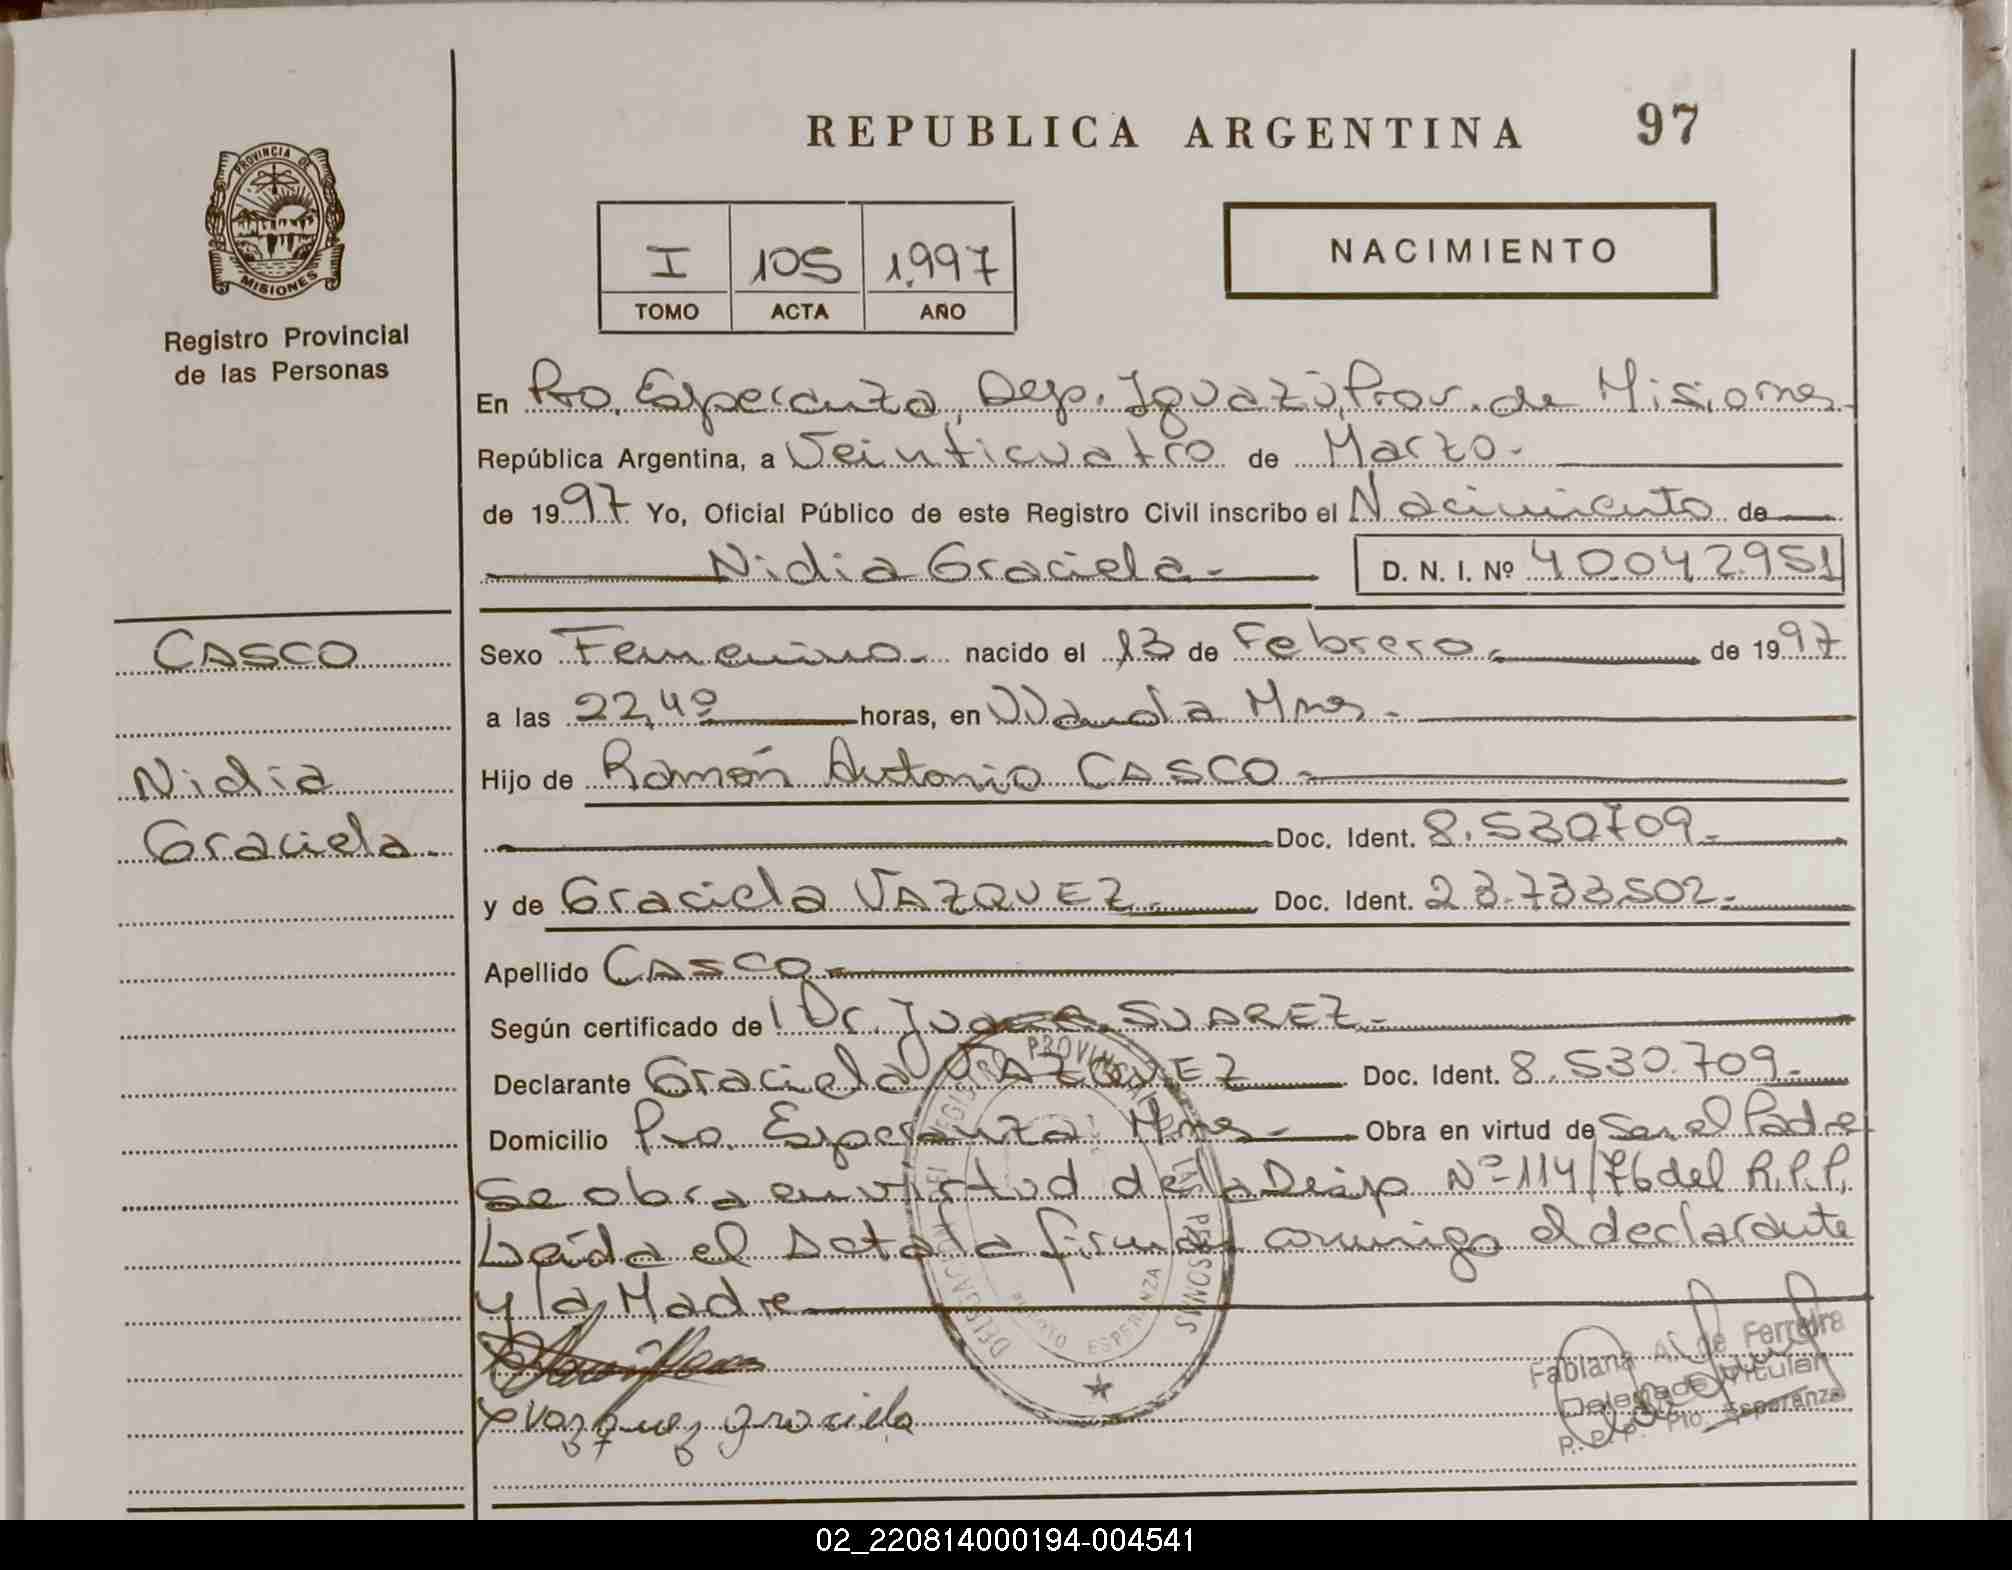 REPUBLICA ARGENTINA 97
PROVINCIA DE
MISIONES
Registro Provincial
de las Personas
I 105 1.997
TOMO ACTA AÑO
NACIMIENTO
En Pto. Esperanza, Dep. Iguazú, Prov. de Misiones
República Argentina, a Veinticuatro de Marzo.
de 1997 Yo, Oficial Público de este Registro Civil inscribo el Nacimiento de
Nidia Graciela. D. N. I. Nº 40.042.951
CASCO
Nidia
Graciela.
Sexo Femenino. nacido el 13 de Febrero. de 1997
a las 22,40 horas, en Wanda Mnes.
Hijo de Ramón Antonio CASCO
Doc. Ident. 8.530709.
y de Graciela VAZQUEZ. Doc. Ident. 23.733.502.
Apellido CASCO
Según certificado de Dr. SUAREZ.
Declarante Graciela VAZQUEZ Doc. Ident. 8.530.709.
Domicilio Pto. Esperanza Mnes. Obra en virtud de Ser el Padre
Se obra en virtud de la Disp Nº 114/76 del R.P.P.
Leída el Acta la firma conmigo el declarante
y la Madre
vazquez graciela
PROVINCIAL
LAS PERSONAS
PUERTO ESPERANZA
Fabiana A. de Ferreira
Delegada Titular
R. P. P. Pto. Esperanza
02_220814000194-004541